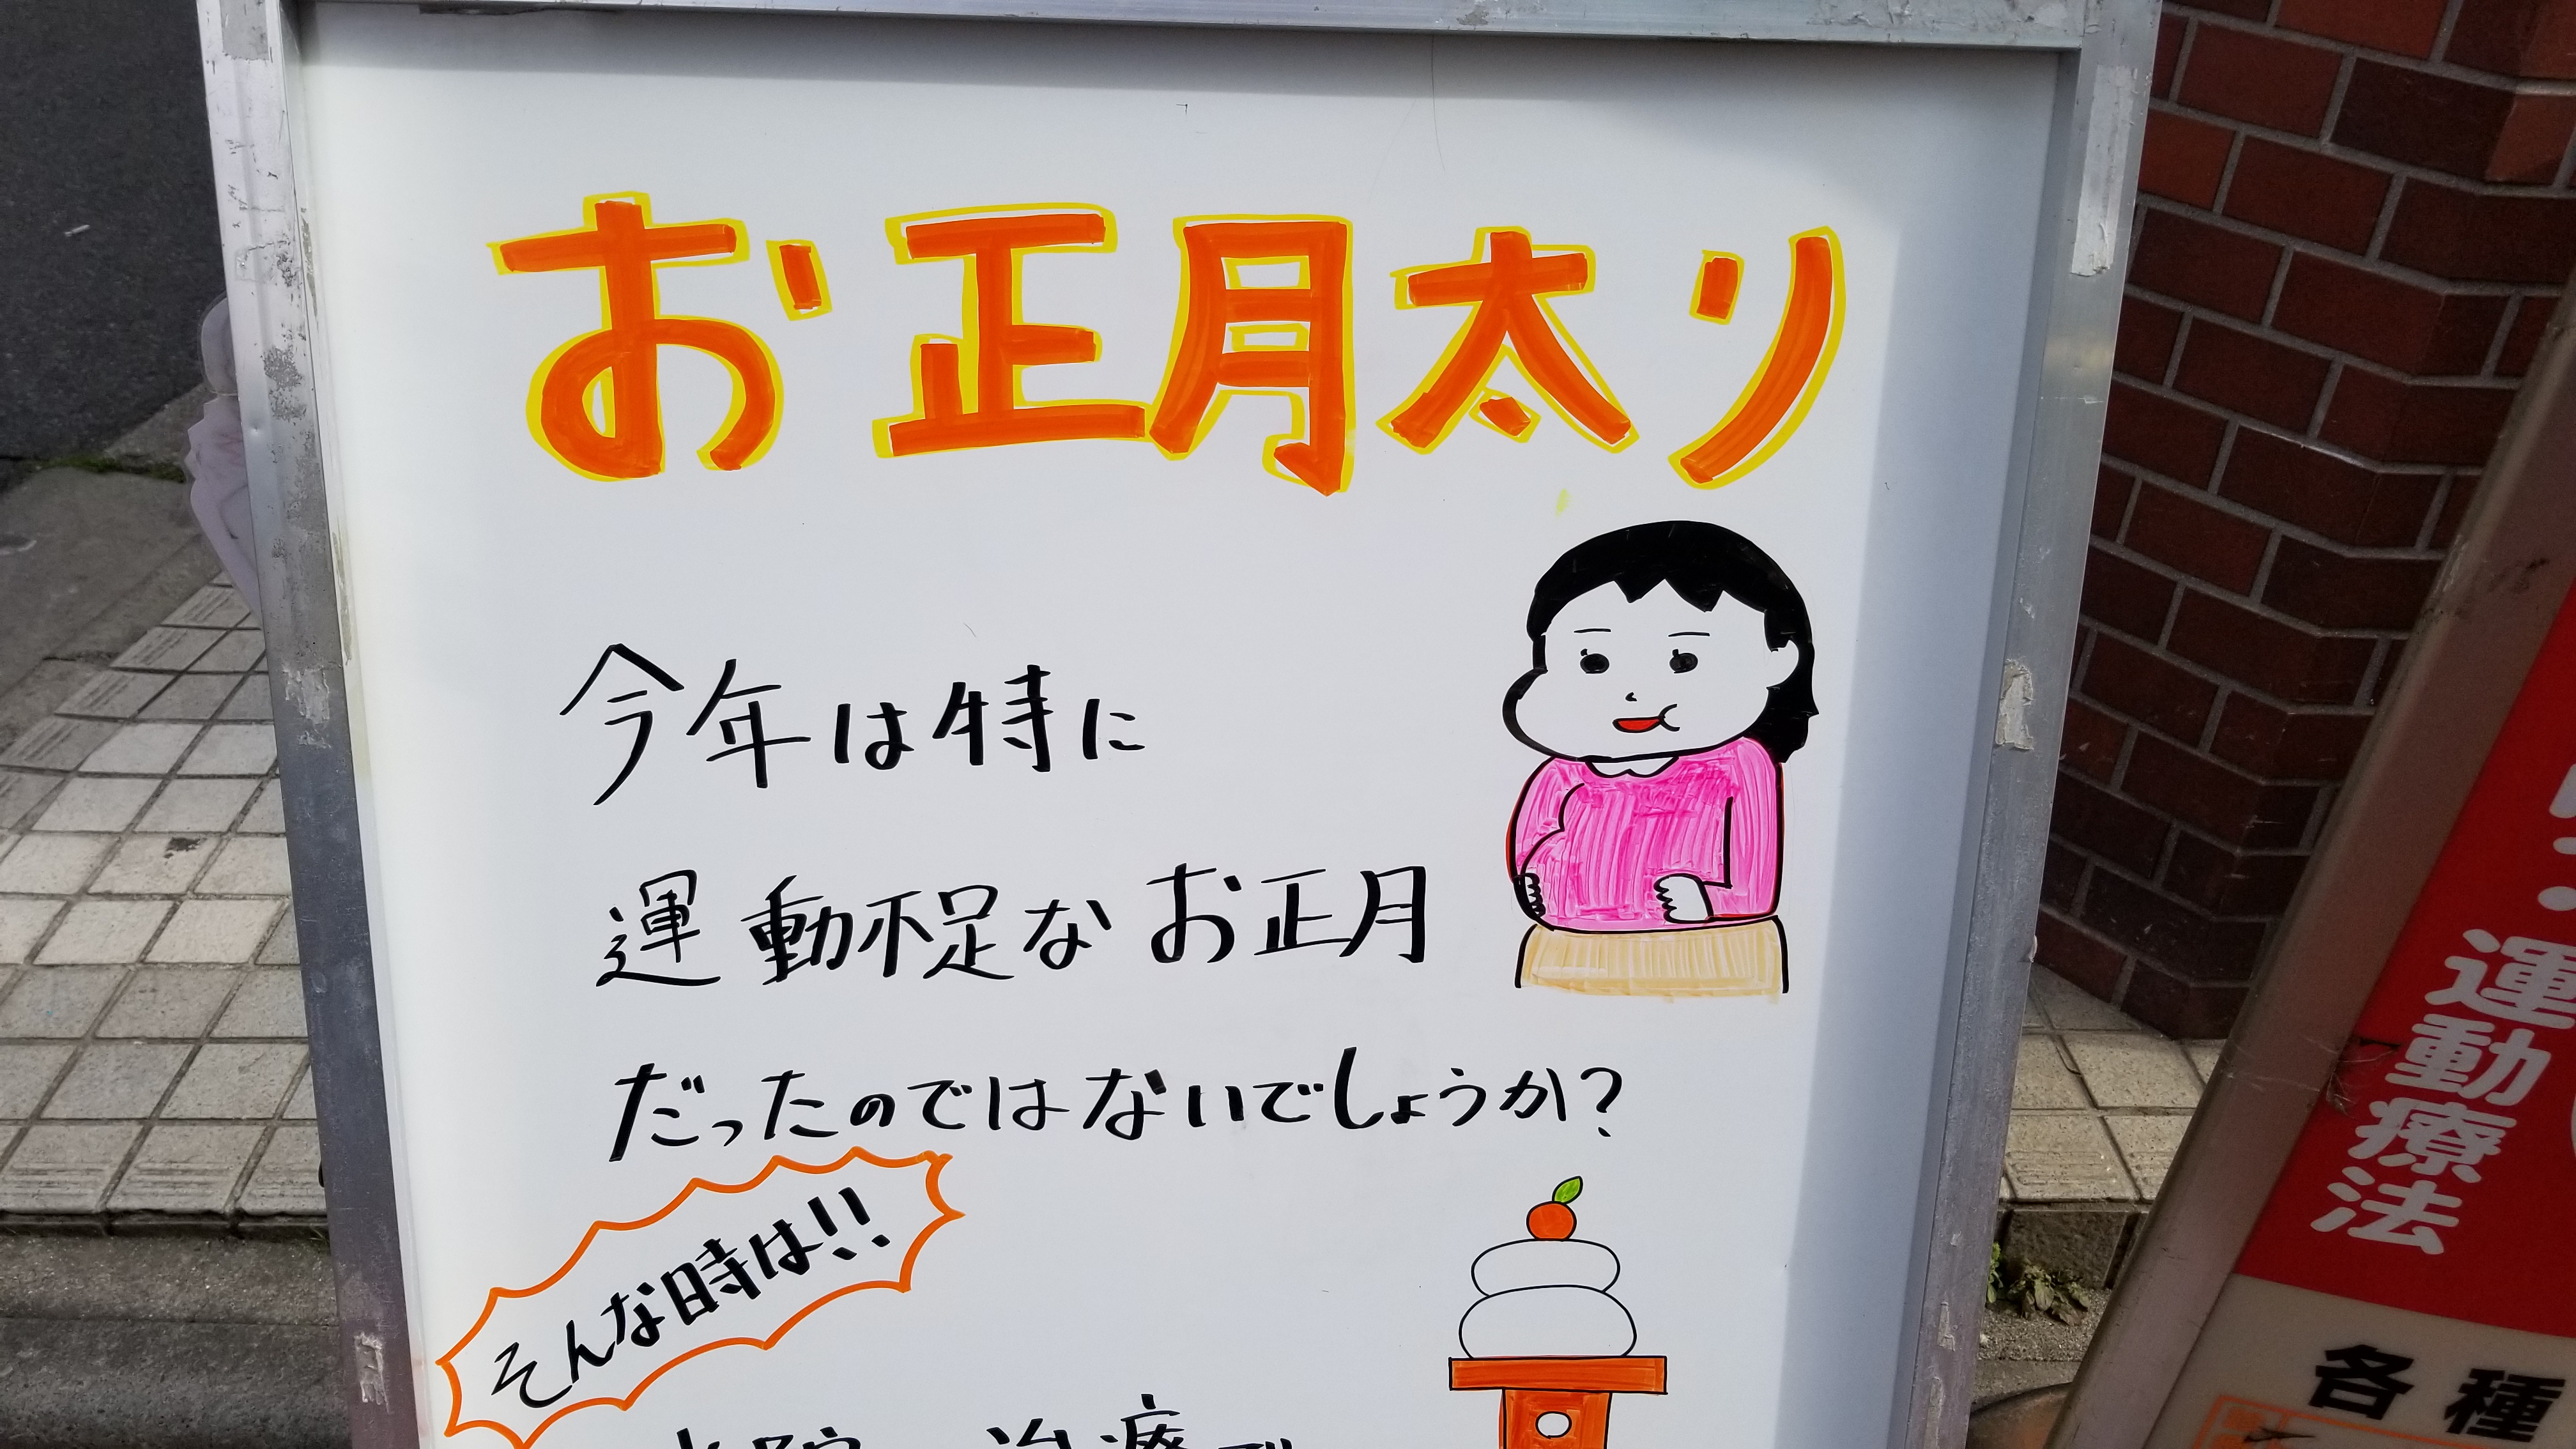 お正月太り
今年は特に
運動不足なお正月
だったのではないでしょうか?
そんな時は!!
運動療法
各種